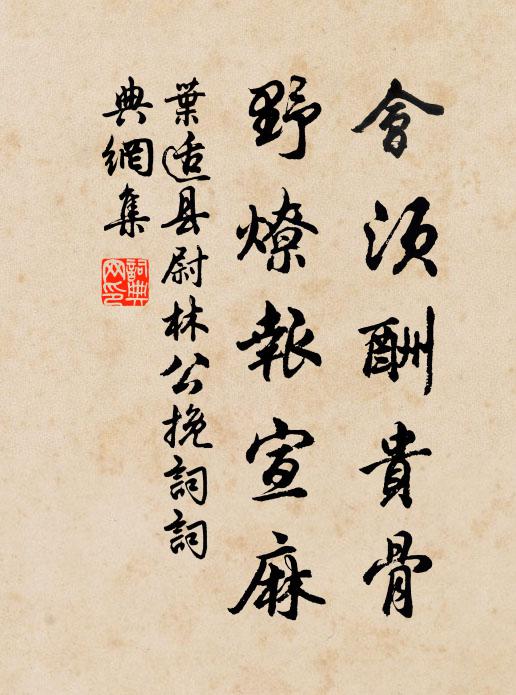 會須酬貴骨
野燎報宣麻
葉适县尉林公挽詞詞
典網集
詞典
网印